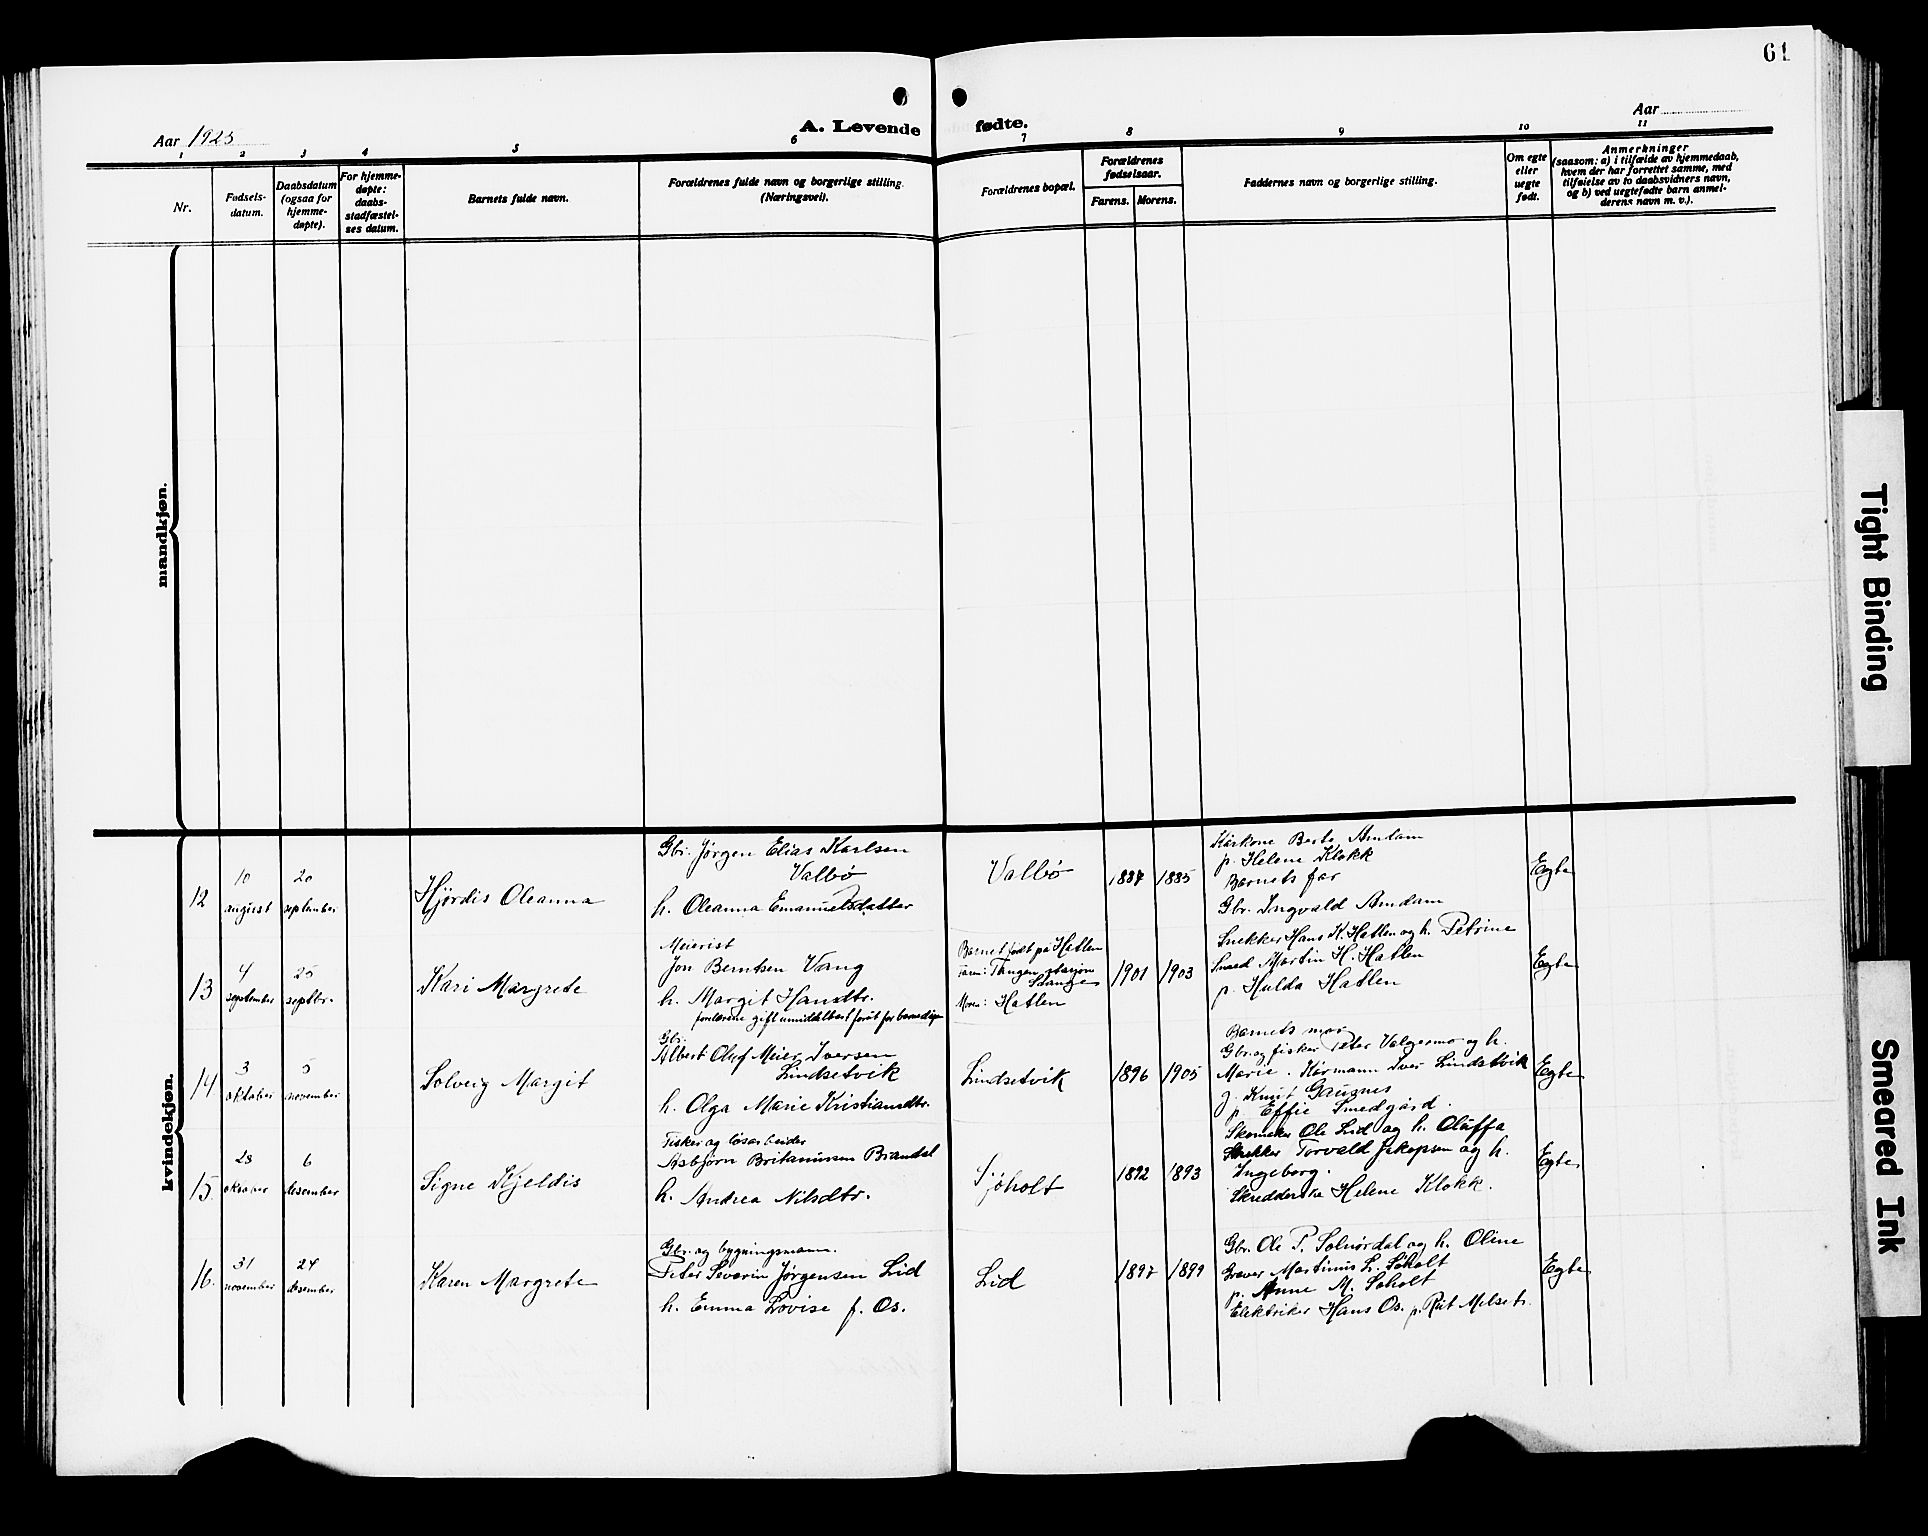 61
Aar 1925
A. Levende fødte.
Aar
1 2 3 4 5 6 7 8 9 10 11
Nr.
Fødsels-
datum.
Daabsdatum
(ogsaa for
hjemme-
døpte).
For hjemme-
døpte:
daabs-
stadfæstel-
ses datum.
Barnets fulde navn.
Forældrenes fulde navn og borgerlige stilling.
(Næringsvei).
Forældrenes bopæl.
Forældrenes
fødselsaar.
Farens. Morens.
Faddernes navn og borgerlige stilling.
Om egte
eller
uegte
født.
Anmerkninger
(saasom: a) i tilfælde av hjemmedaab,
hvem der har forrettet samme, med
tilføielse av to daabsvidners navn,
og b) ved uegtefødte barn anmel-
derens navn m. v.).
mandkjøn.
kvindekjøn.
12
10
august
20
september
Hjørdis Oleanna
Gbr. Jørgen Elias Karlsen
Valbø
h. Oleanna Emanuelsdatter
Valbø
1887 1885
Berte Amdam
p. Helene Klokk
Barnets far
Gbr. Ingvald Amdam
Egte
13
4
september
25
septbr.
Kari Margrete
Meierist
Jon Berntsen Vang
h. Margit Hansdtr.
foreldrene gift umiddelbart forut for barnedåpen
Barnet født på Hatlen
Faren: Tangen stasjon
Stange
Moren: Hatlen
1901 1903
Snekker Hans K. Hatlen og h. Petrine
Smed Martin H. Hatlen
p. Hulda Hatlen
Egte
14
3
oktober
5
november
Solveig Margit
Gbr.
Albert Oluf Meier Iversen
Lindsetvik
h. Olga Marie Kristiansdtr.
Lindsetvik
1896 1905
Barnets mor
Gbr. og fisker Peter Valgermo og h.
Marie. Kårmann Iver Lindsetvik
g. Knut Gausnes
p. Effie Smedgård.
Egte
15.
28
oktober
6
desember
Signe Kjeldis
Fisker og løsarbeider
Asbjørn Britanussen Brandal
h. Andrea Nilsdtr.
Sjøholt
1892 1893
Skomaker Ole Lid og h. Oluffa
Snekker Torvald Jakopsen og h.
Ingeborg.
Skredderske Helene Klokk.
Egte
16.
31
november
24
desember
Karen Margrete
Gbr. og bygningsmann.
Peter Severin Jørgensen Lid
h. Emma Lovise f. Os.
Lid
1897 1899
Gbr. Ole P. Solnørdal og h. Oline
Graver Martinus L. Søholt
p. Anne M. Søholt
Elektriker Hans Os. p. Rut Melset.
Egte
Tight Binding
Smeared Ink